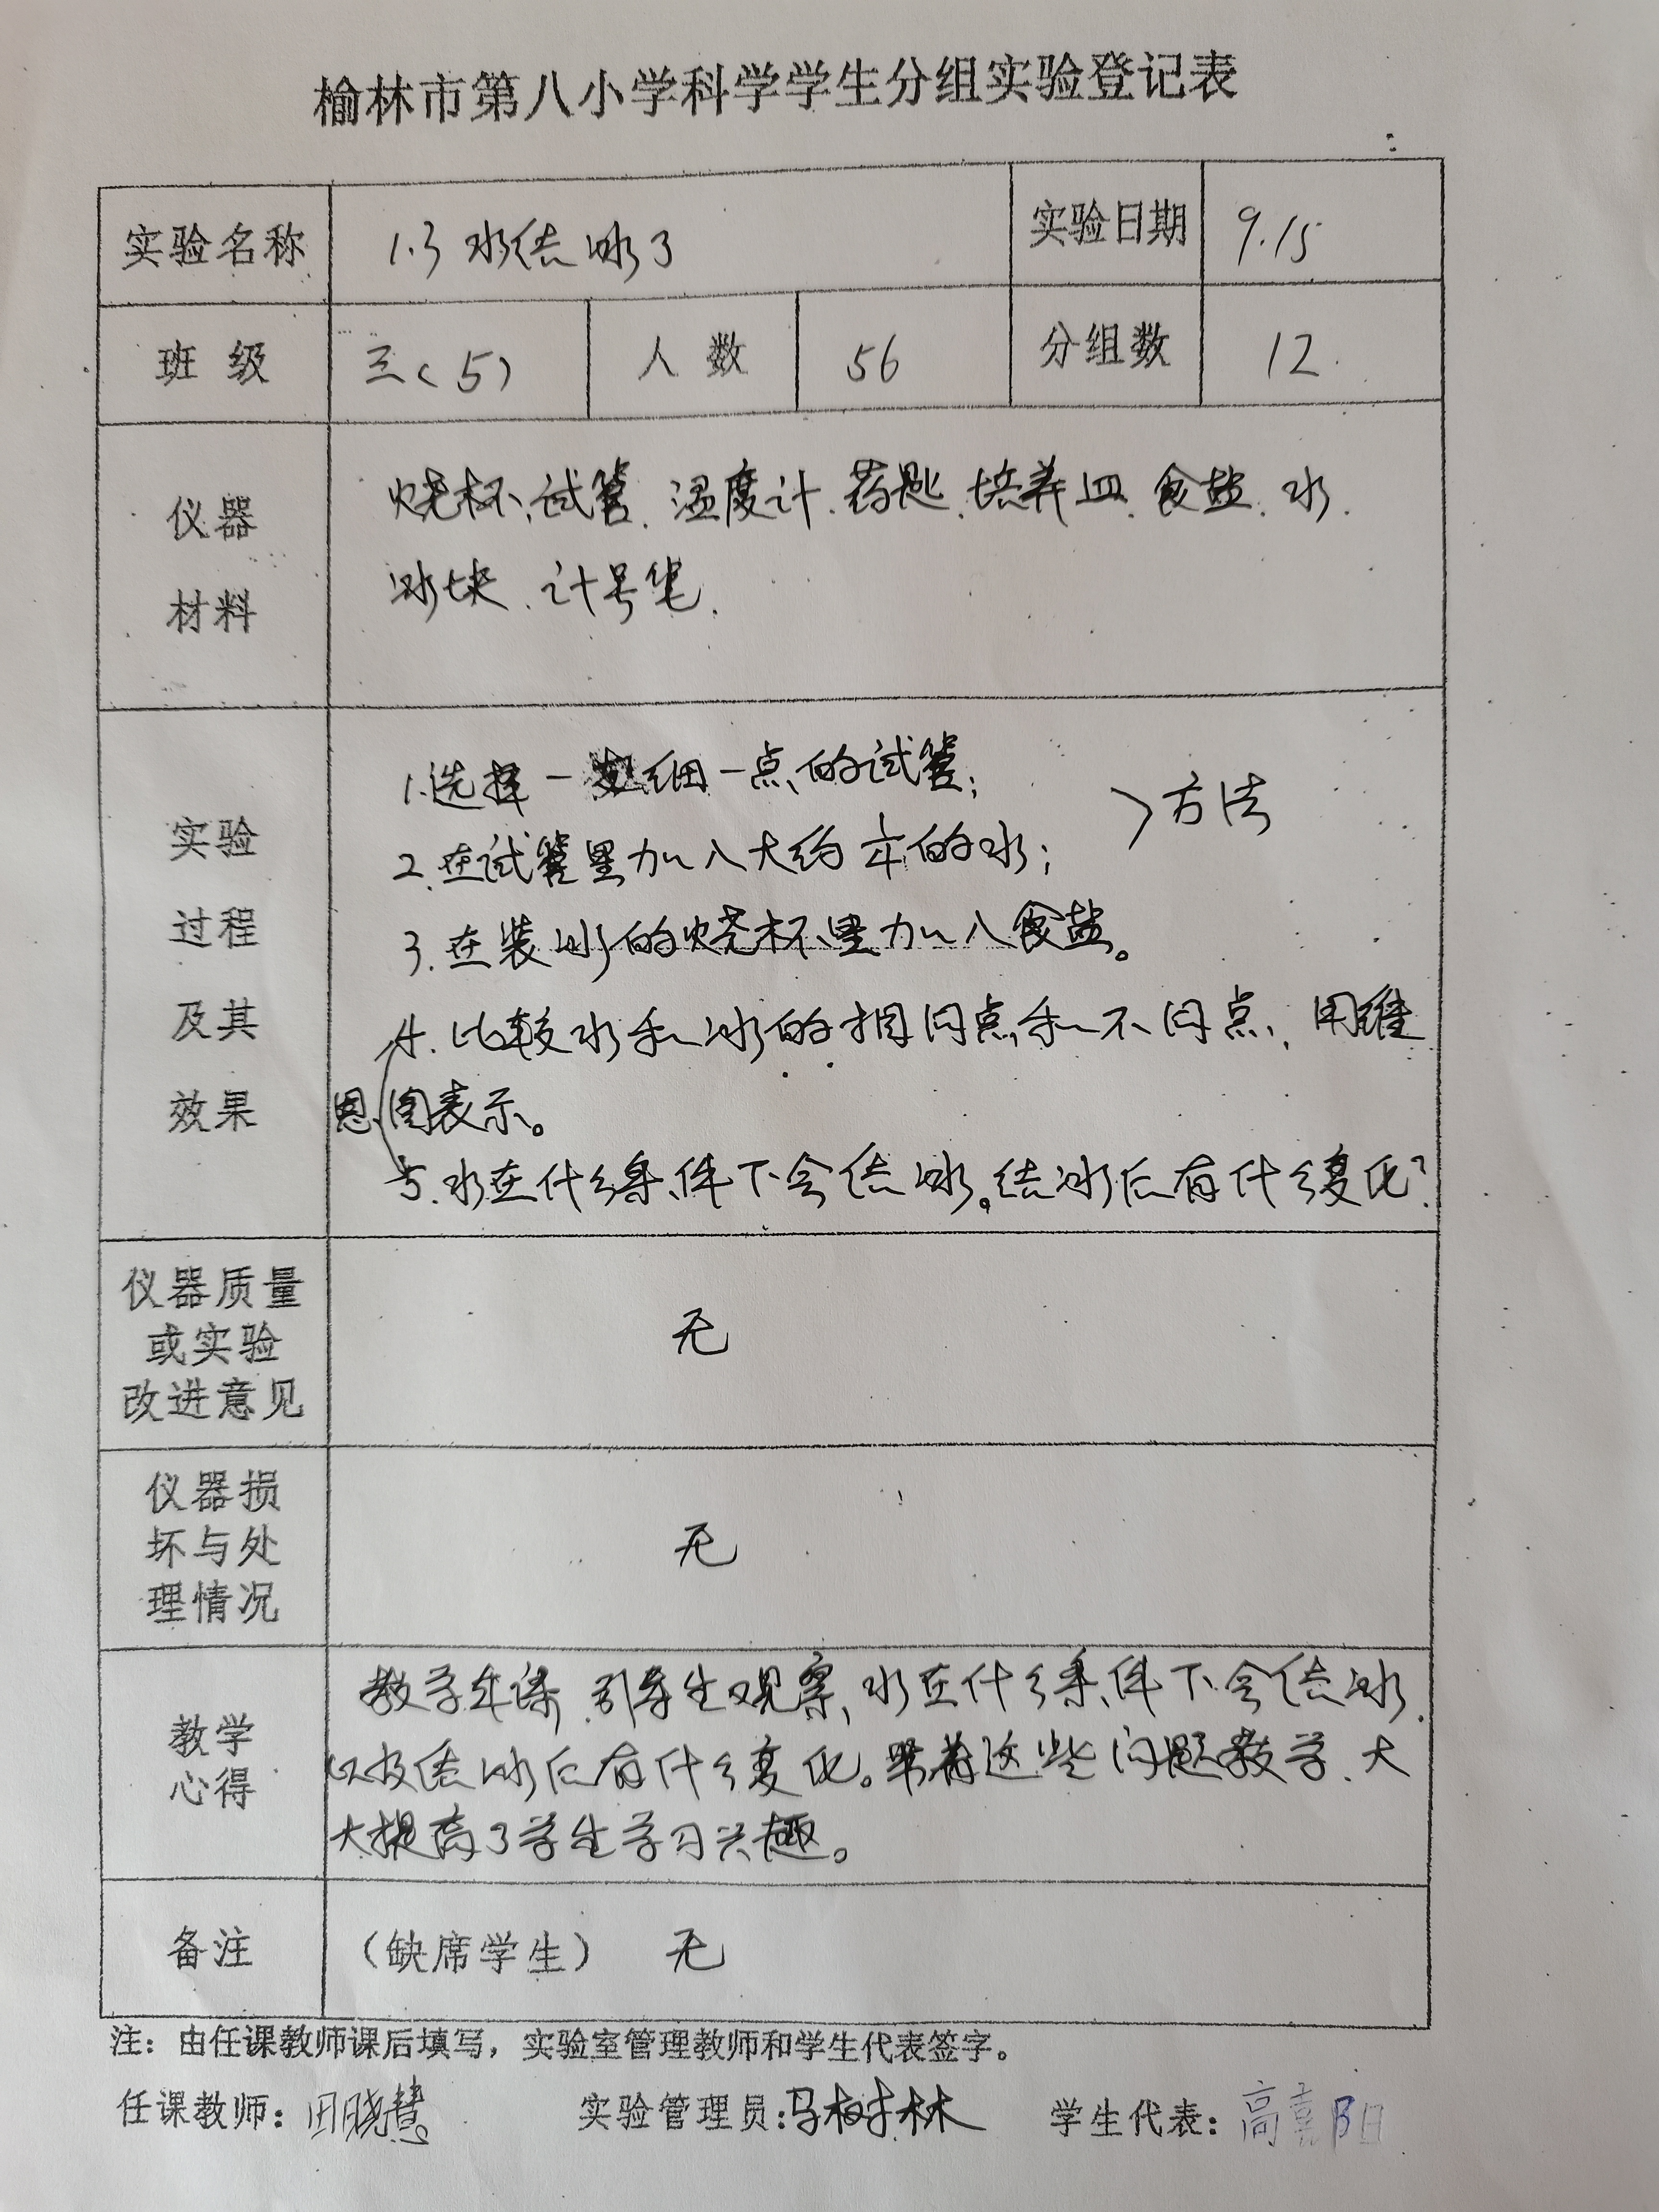 榆林市第八小学科学学生分组实验登记表
实验名称 1.3 水结冰了 实验日期 9.15
班 级 三(5) 人 数 56 分组数 12
仪器
材料
烧杯、试管、温度计、药匙、培养皿、食盐、水、
冰块、计号笔.
实验
过程
及其
效果
1.选择一 细一点的试管; 〉方法
2.在试管里加入大约 的水;
3.在装冰的烧杯里加入食盐。
4.比较水和冰的相同点和不同点、用维
恩图表示。
5.水在什么条件下会结冰。结冰后有什么变化?
仪器质量
或实验
改进意见
无
仪器损
坏与处
理情况
无
教学
心得
教学 课、引 学生观察、水在什么条件下会结冰.
以及结冰后有什么变化。带着这些问题教学、大
大提高了学生学习兴趣。
备注 (缺席学生) 无
注:由任课教师课后填写,实验室管理教师和学生代表签字。
任课教师:田晓慧 实验管理员:马树林 学生代表:高嘉阳